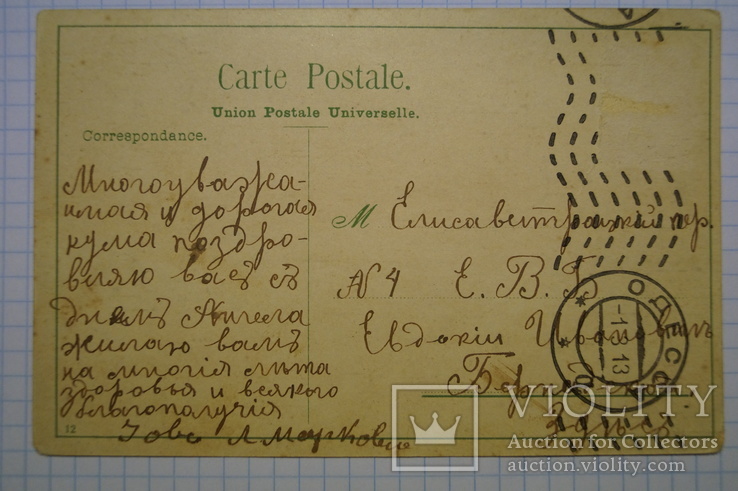 Carte Postale.
Union Postale Universelle.
Correspondance.
Многоуважа-
имая и дорогая
кума поздро-
вляю васъ съ
днемъ Ангела
жилаю вамъ
на многія лѣта
здоровья и всякого
благополучія
М Елисаветградкій пр.
№ 4 Е. В. Б
Евдокіи
ОДЕССА
-1.3 13
12
VIOLITY
Auction for Collectors
auction.violity.com